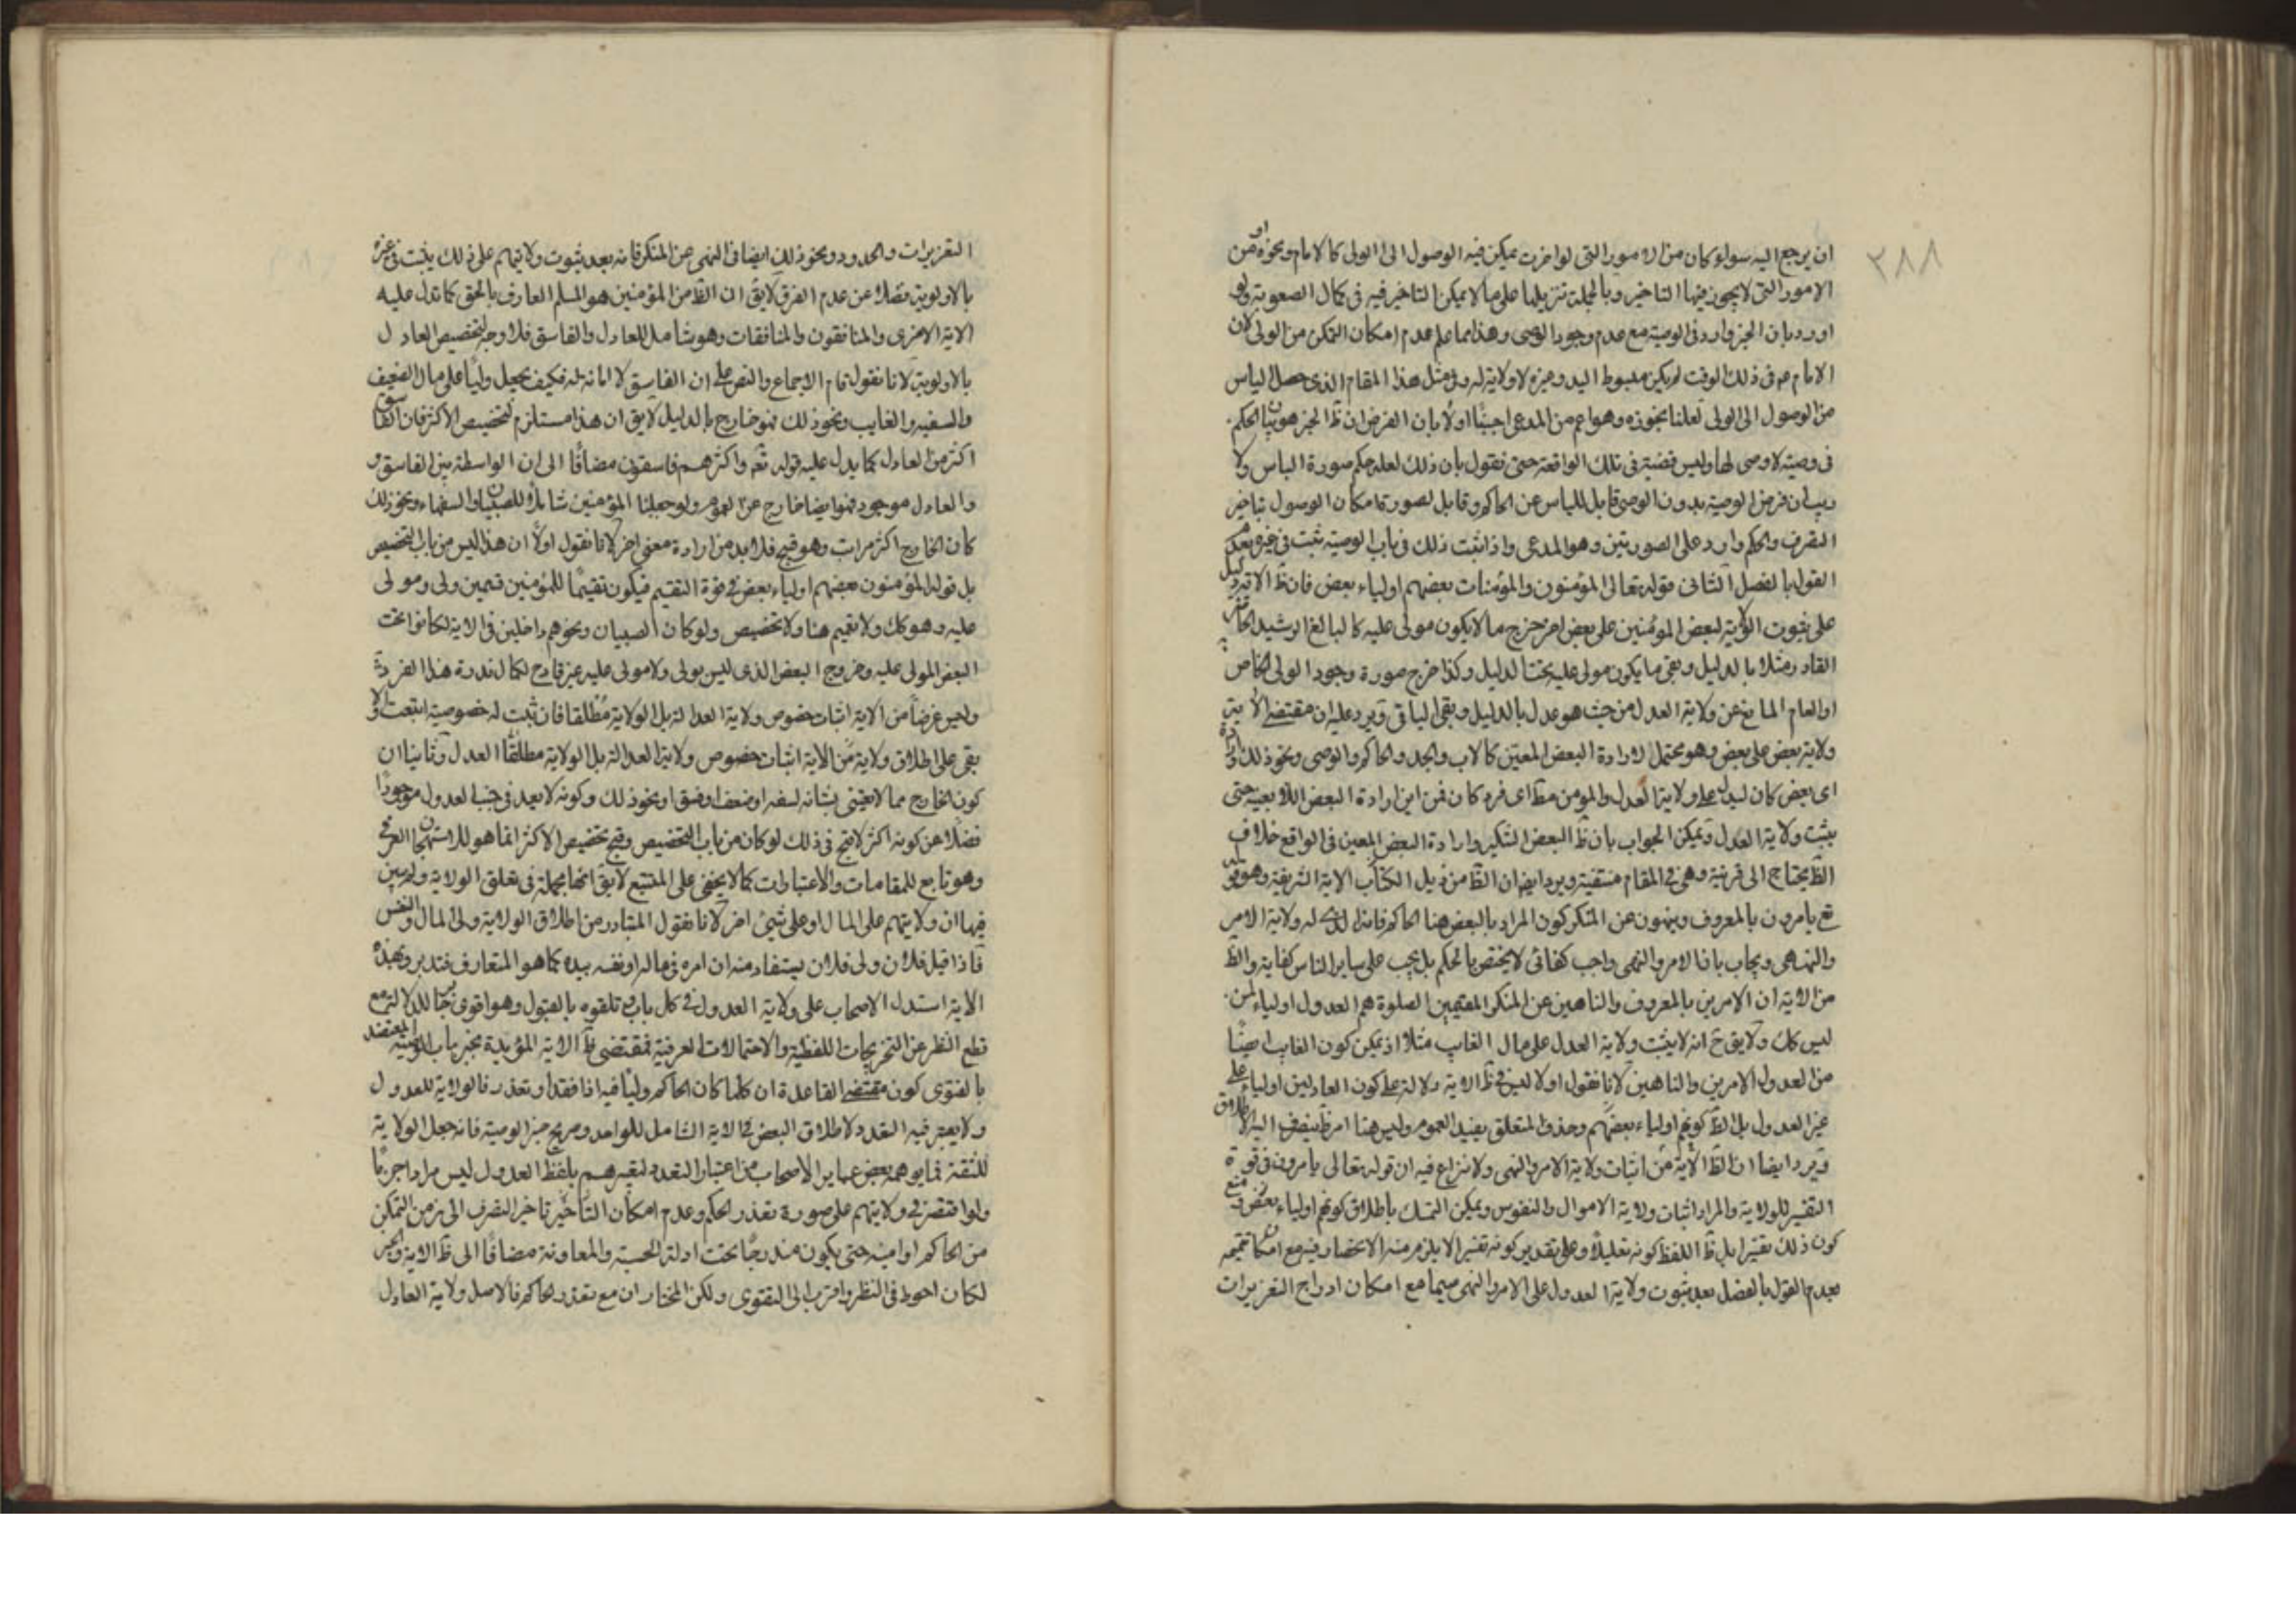 ٣٨٨
ان يرجع اليه سواء كان من الامور التى لو اخرت يمكن فيه الوصول الى الولى كالامام ونحوه او من
الامور التى لا يجوز فيها التاخير وبالجملة تنزيلها على ما لا يمكن التاخير فيه فى كمال الصعوبة ولو
اورد بان الخبر وارد فى الوصية مع عدم وجود الوصى وهذا مما علم عدم امكان التمكن من الولى لان
الامام ع فى ذلك الوقت لم يكن مبسوط اليد وغيره لا ولاية له وفى مثل هذا المقام الذى حصل الياس
من الوصول الى الولى لعلنا نجوزه وهو اعم من المدعى اجبنا اولا بان الغرض ان ظ الخبر هو بيان الحكم
فى وصية لا وصى لها وليس قضية فى تلك الواقعة حتى نقول بان ذلك لعله حكم صورة الياس ولا
ريب ان فرض الوصية بدون الوصى قابل للياس عن الحاكم وقابل لصورة امكان الوصول بتاخير
التصرف والحكم وارد على الصورتين وهو المدعى واذا ثبت ذلك فى باب الوصية ثبت فى غيره بعدم
القول بالفصل الثانى قوله تعالى المؤمنون والمؤمنات بعضهم اولياء بعض فان ظ الاية دليل
على ثبوت الولاية لبعض المؤمنين على بعض اخر خرج ما لا يكون مولى عليه كالبالغ الرشيد الحاضر
القادر مثلا بالدليل وبقى ما يكون مولى عليه تحت الدليل وكذا خرج صورة وجود الولى الخاص
او العام المانع عن ولاية العدل من حيث هو عدل بالدليل وبقى الباقى ويرد عليه ان مقتضى الاية
ولاية بعض على بعض وهو محتمل لارادة البعض المعين كالاب والجد والحاكم والوصى ونحو ذلك
اى بعض كان ليدل على ولاية العدل والمؤمن مط اى فرد كان فمن اين ارادة البعض اللا بعينه حتى
يثبت ولاية العدل ويمكن الجواب بان ظ البعض التنكير وارادة البعض المعين فى الواقع خلاف
الظ يحتاج الى قرينة وهى فى المقام منتفية ويرد ايضا ان الظ من ذيل الكتاب الاية الشريفة وهو قوله
تع يامرون بالمعروف وينهون عن المنكر كون المراد بالبعض هنا الحاكم فانه الذى له ولاية الامر
والنهى ويجاب بان الامر والنهى واجب كفائى لا يختص بالحكم بل يجب على ساير الناس كفاية والظ
من الاية ان الامرين بالمعروف والناهين عن المنكر المقيمين الصلوة هم العدول اولياء لمن
ليس كك ولا يق ح انه لا يثبت ولاية العدل على مال الغايب مثلا اذ يمكن كون الغايب ايضا
من العدول الامرين والناهين لانا نقول اولا ليس فى ظ الاية دلالة على كون العادلين اولياء على
غير العدول بل الظ كونهم اولياء بعضهم وحذف المتعلق يفيد العموم وليس هنا امر ظ ينصرف اليه الاطلاق
ويرد ايضا ان الظ الاية من اثبات ولاية الامر والنهى ولا نزاع فيه ان قوله تعالى يامرون فى قوة
التفسير للولاية والمراد اثبات ولاية الاموال والنفوس ويمكن التمسك باطلاق كونهم اولياء بعض ومنع
كون ذلك تفسيرا بل ظ اللفظ كونه تعليلا وعلى تقدير كونه تفسيرا لا يلزم منه الانحصار فيه مع امكان تتميمه
بعدم القول بالفصل بعد ثبوت ولاية العدول على الامر والنهى سيما مع امكان ادراج التعزيرات
التعزيرات والحدود ونحو ذلك ايضا فى النهى عن المنكر فانه بعد ثبوت ولايتهم على ذلك يثبت فى غيره
بالاولوية فضلا عن عدم الفرق لا يق ان الظ من المؤمنين هو المسلم العارف بالحق كما تدل عليه
الاية الاخرى والمنافقون والمنافقات وهو شامل للعادل والفاسق فلا وجه لتخصيص العادل
بالاولوية لانا نقول قام الاجماع والنص على ان الفاسق لا امانة له فكيف يجعل وليا على مال الضعيف
والسفيه والغايب ونحو ذلك فهو خارج بالدليل لا يق ان هذا مستلزم لتخصيص الاكثر فان الفاسق
اكثر من العادل كما يدل عليه قوله تعه واكثرهم فاسقون مضافا الى ان الواسطة بين الفاسق و
والعادل موجود فهو ايضا خارج عن العموم ولو جعلنا المؤمنين شاملا للصبيان والسفهاء ونحو ذلك
كان الخارج اكثر مرات وهو قبيح فلا بد من ارادة معنى اخر لانا نقول اولا ان هذا ليس من باب التخصيص
بل قوله المؤمنون بعضهم اولياء بعض فى قوة التقسيم فيكون تقسيما للمؤمنين قسمين ولى ومولى
عليه وهو كك ولا تعميم هنا ولا تخصيص ولو كان الصبيان ونحوهم داخلين فى الاية لكانوا تحت
البعض المولى عليه وخروج البعض الذى ليس بولى ولا مولى عليه غير قادح لكمال ندرة هذا الفرد
وليس غرضنا من الاية اثبات خصوص ولاية العدالة بل الولاية مطلقا فان ثبت له خصوصية اتبعت والا
بقى على اطلاق ولاية من الاية اثبات خصوص ولاية العدالة بل الولاية مطلقا العدل وثانيا ان
كون الخارج مما لا يعتنى بشانه لسفه او ضعف او فسق او نحو ذلك وكونه لا يعد فى جنب العدول موجودا
فضلا عن كونه اكثر لا قبح فى ذلك لو كان من باب التخصيص وقبح تخصيص الاكثر انما هو للاستهجان العرفى
وهو تابع للمقامات والاعتبارات كما لا يخفى على المتتبع لا يق انها مجملة فى تعلق الولاية ولم يبين
فيها ان ولايتهم على المال او على شيئ اخر لانا نقول المتبادر من اطلاق الولاية ولى المال والنفس
فاذا قيل فلان ولى فلان يستفاد منه ان امره فى ماله او نفسه بيده كما هو المتعارف فتدبر وبهذه
الاية استدل الاصحاب على ولاية العدول فى كل باب وتلقوه بالقبول وهو اقوى للدلالة مع
قطع النظر عن التخريجات اللفظية والاحتمالات العرفية فمقتضى ظ الاية المؤيدة بخبر باب الوصية المعتضد
بالفتوى كون مقتضى القاعدة ان كلما كان الحاكم وليا فيه اذا فقد او تعذر فالولاية للعدول
ولا يعتبر فيه التعدد لاطلاق البعض فى الاية الشامل للواحد وصريح خبر الوصية فانه جعل الولاية
للثقة فما يوهمه بعض عباير الاصحاب من اعتبار التعدد لتعبيرهم بلفظ العدول ليس مرادا جزما
ولو اقتصر فى ولايتهم على صورة تعذر الحكم وعدم امكان التأخير تاخير التصرف الى زمن التمكن
من الحاكم او امينه حتى يكون مندرجا تحت ادلة الحسبة والمعاونة مضافا الى ظ الاية والخبر
لكان احوط فى النظر واقرب الى التقوى ولكن المختار ان مع تعذر الحاكم فالاصل ولاية العادل